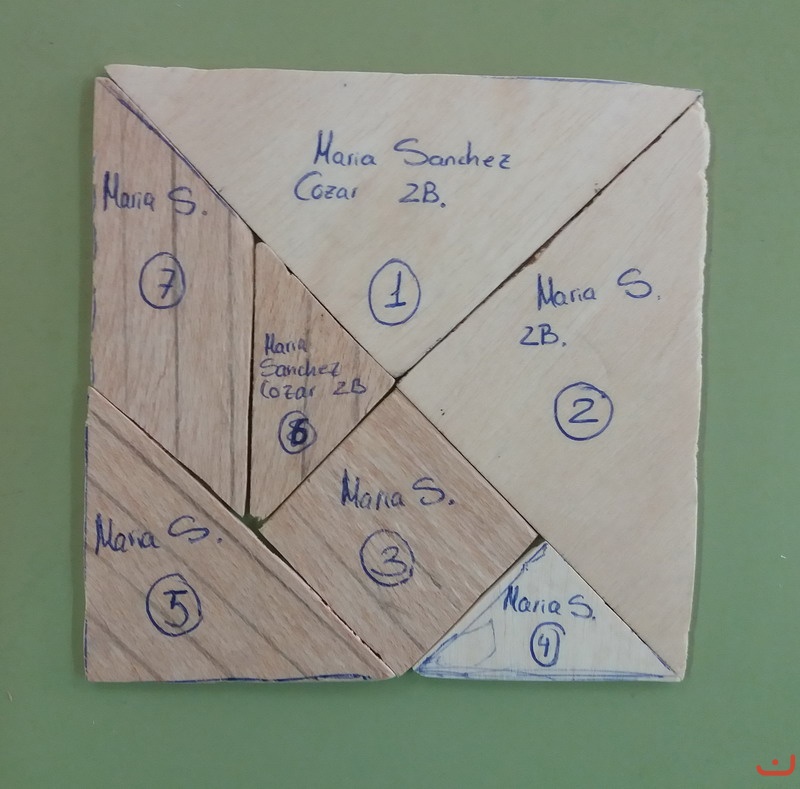 Maria Sanchez
Cozar 2B.
1
Maria S.
7
Maria S.
2B.
2
Maria
Sanchez
Cozar 2B
6
Maria S.
3
Maria S.
5
Maria S.
4